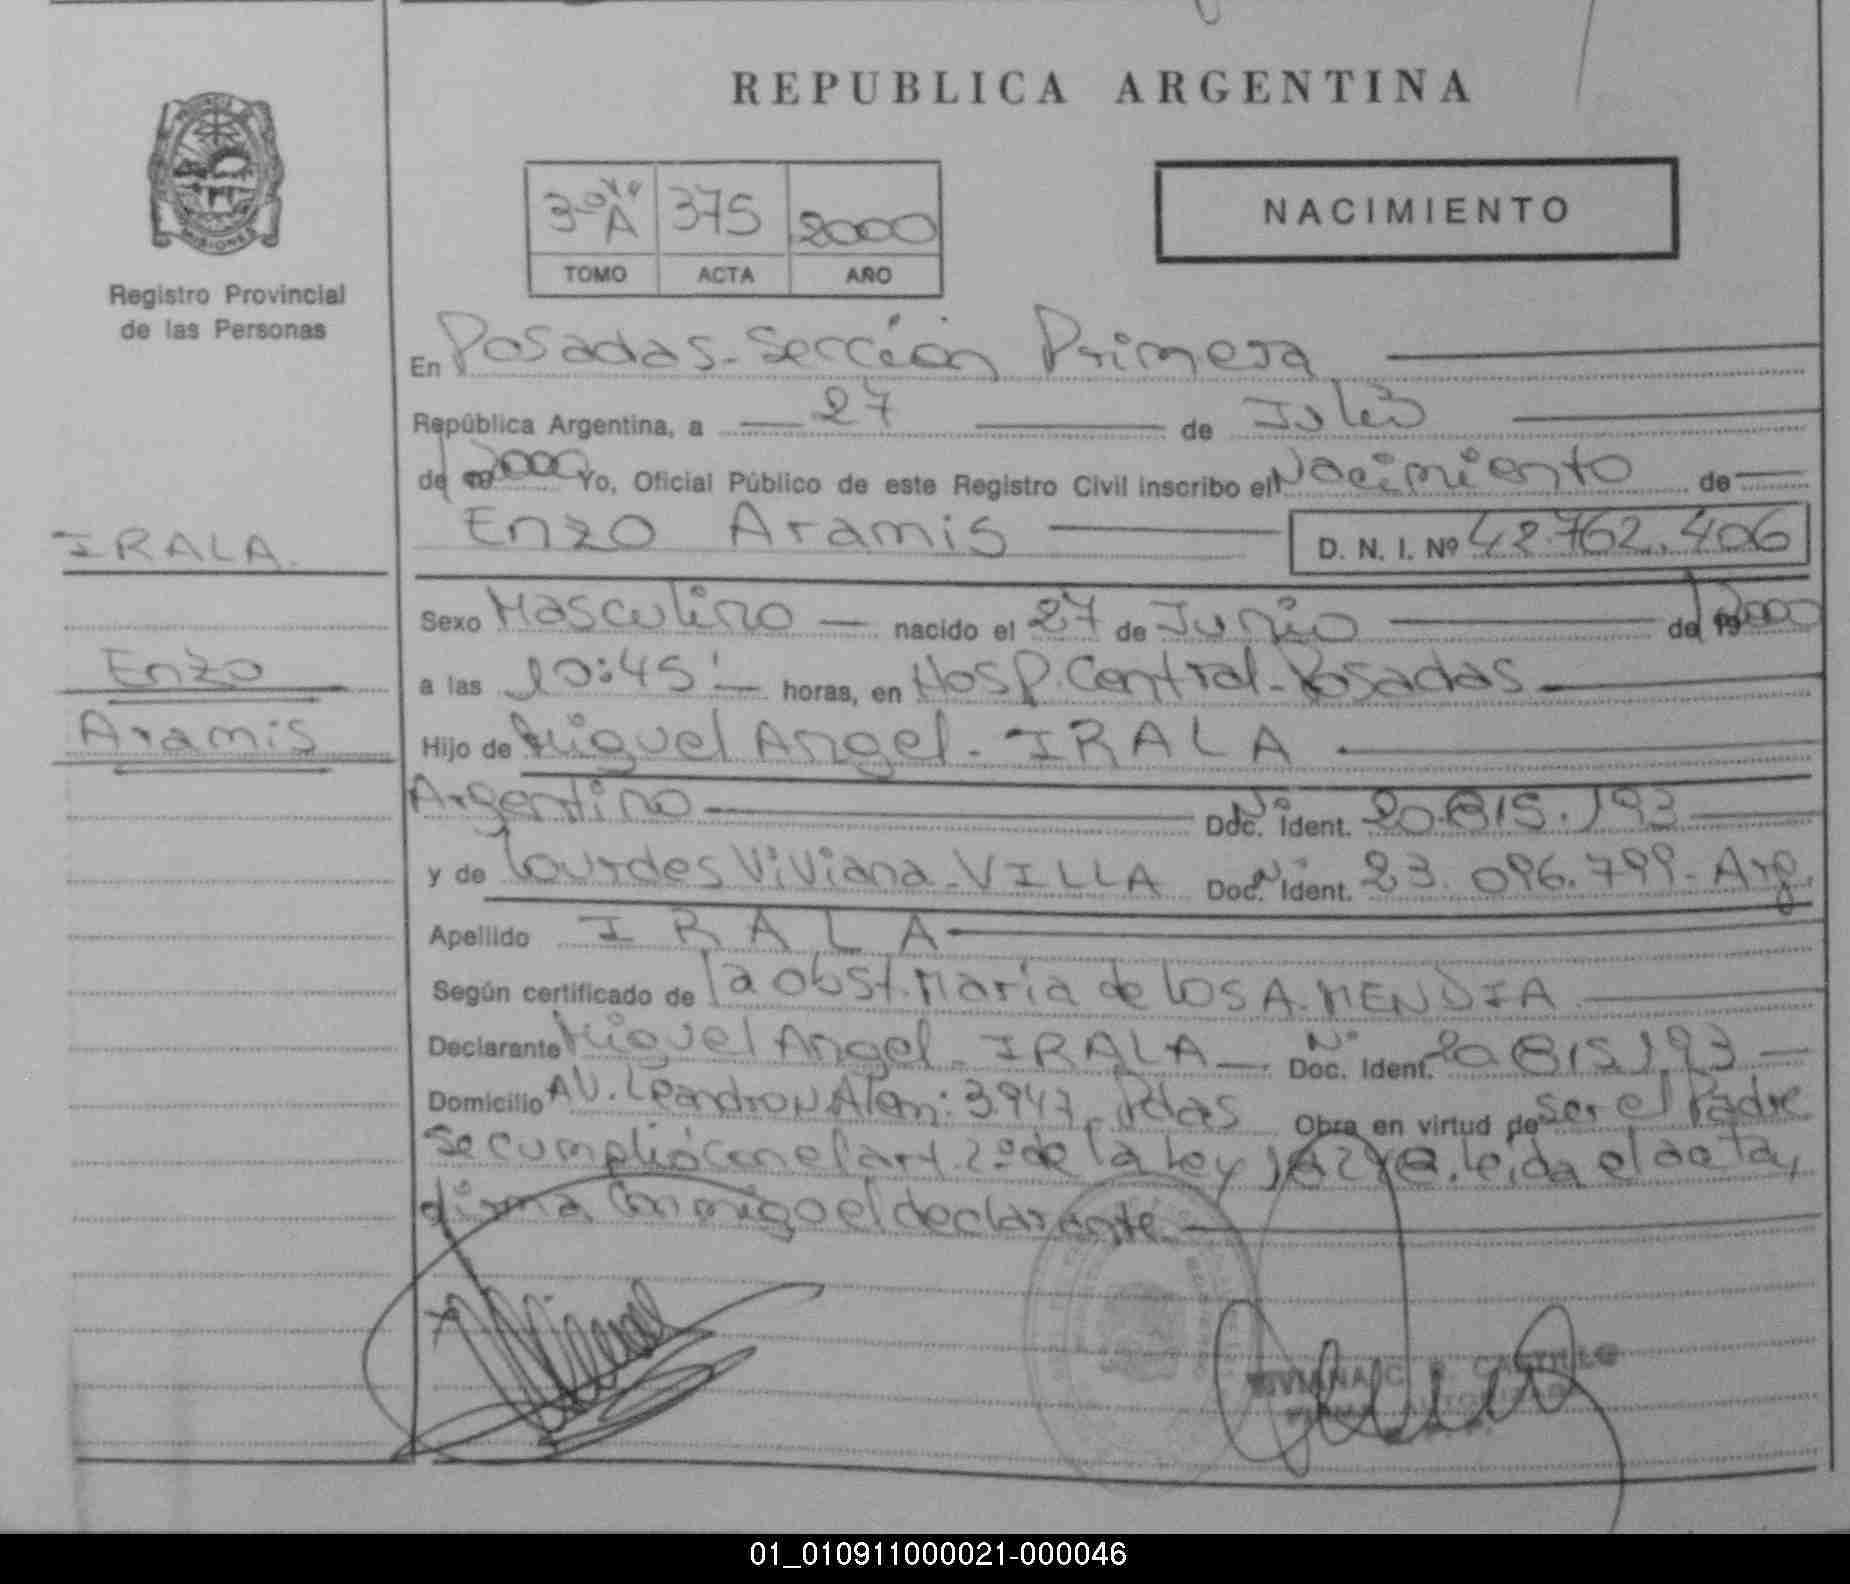 REPUBLICA ARGENTINA
3º A 375 2000
TOMO ACTA AÑO
NACIMIENTO
MISIONES
Registro Provincial
de las Personas
En Posadas-Sección Primera
República Argentina, a 27 de Julio
de 2000 Yo, Oficial Público de este Registro Civil inscribo el Nacimiento de
Enzo Aramis D. N. I. Nº 42.762.406
IRALA
Enzo
Aramis
Sexo Masculino nacido el 27 de Junio de 2000
a las 10:45' horas, en Hosp. Central-Posadas
Hijo de Miguel Angel - IRALA
Argentino Nº Doc. Ident. 20.815.193
y de Lourdes Viviana - VILLA Nº Doc. Ident. 23.096.799 - Arg.
Apellido IRALA
Según certificado de la obst. María de los A. MENDIA
Declarante Miguel Angel - IRALA Nº Doc. Ident. 20.815.193
Domicilio AV. Leandro N Alem: 3.947 - Pdas Obra en virtud de ser el Padre
se cumplió con el art. 2º de la Ley leida el acta,
firma conmigo el declarante.
CASTILLO
01_010911000021-000046